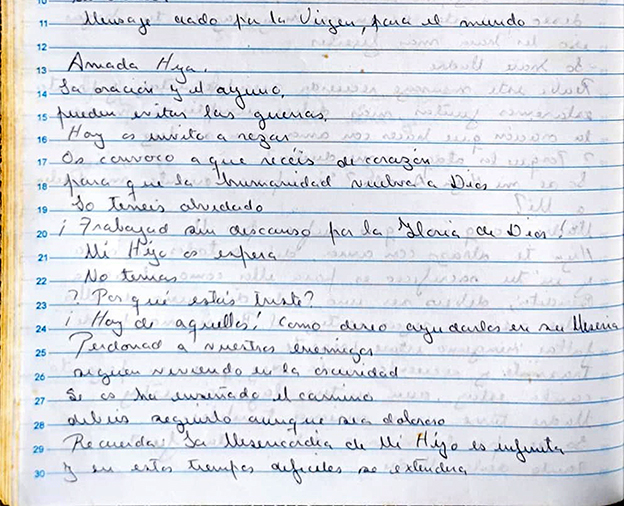 11 Mensage dado por la Virgen, para el mundo
12
13 Amada Hija.
14 La oración y el ayuno,
15 pueden evitar las guerras.
16 Hoy os invito a rezar
17 Os convoco a que recéis de corazón
18 para que la humanidad vuelva a Dios
19 Lo teneis olvidado
20 ¡ Trabajad sin descanso por la Gloria de Dios!
21 Mi Hijo os espera
22 No temas
23 ? Por qué estás triste?
24 ¡ Hay de aquellos! Como deseo ayudarlos en su Miseria
25 Perdonad a vuestros enemigos
26 siguen viviendo en la oscuridad
27 Se os ha enseñado el camino
28 debeis seguirlo aunque sea doloroso
29 Recuerda La Misericordia de Mi Hijo es infinita
30 y en estos tiempos dificiles se extendera